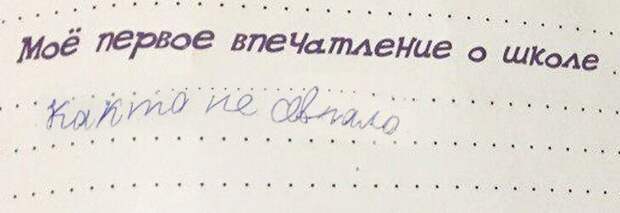 Моё первое впечатление о школе
както не совпало